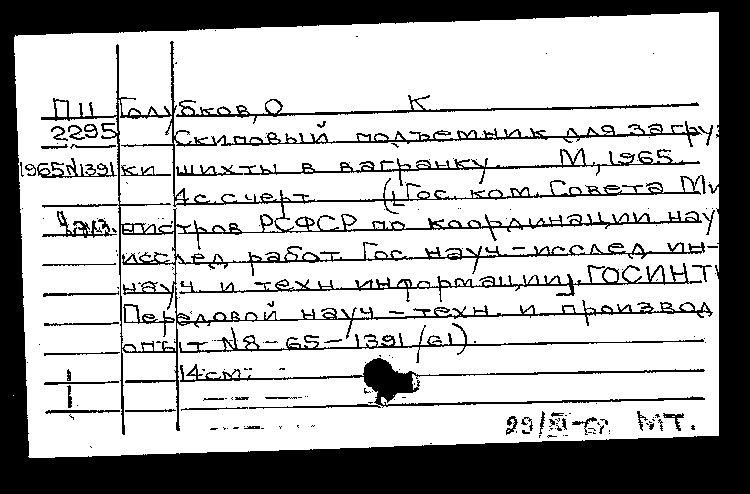 П11 Голубков, О К
2295 Скиповый подъемник для загруз
1965N1391 ки шихты в вагранку. М., 1965.
4с. с черт (Гос. ком. Совета Ми
4экз. нистров РСФСР по координации науч
исслед работ. Гос науч-исслед ин-
науч и техн информации). ГОСИНТИ
Передовой науч-техн. и производ
опыт N8-65-1391/61).
14см.
29/XI-67 МТ.